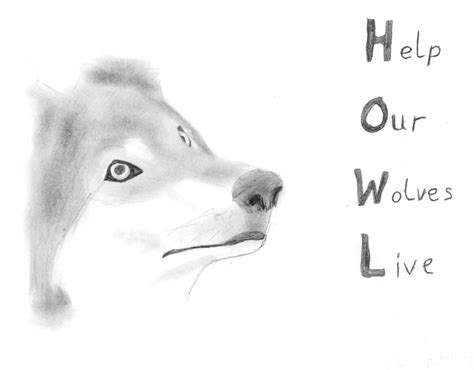 Help
Our
Wolves
Live